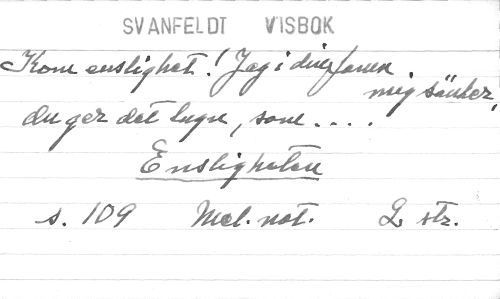 SVANFELDT VISBOK
Kom enslighet! Jag i din famn
mig sänker,
du ger det lugn, som....
Ensligheten
s. 109 Mel. not. 2 str.